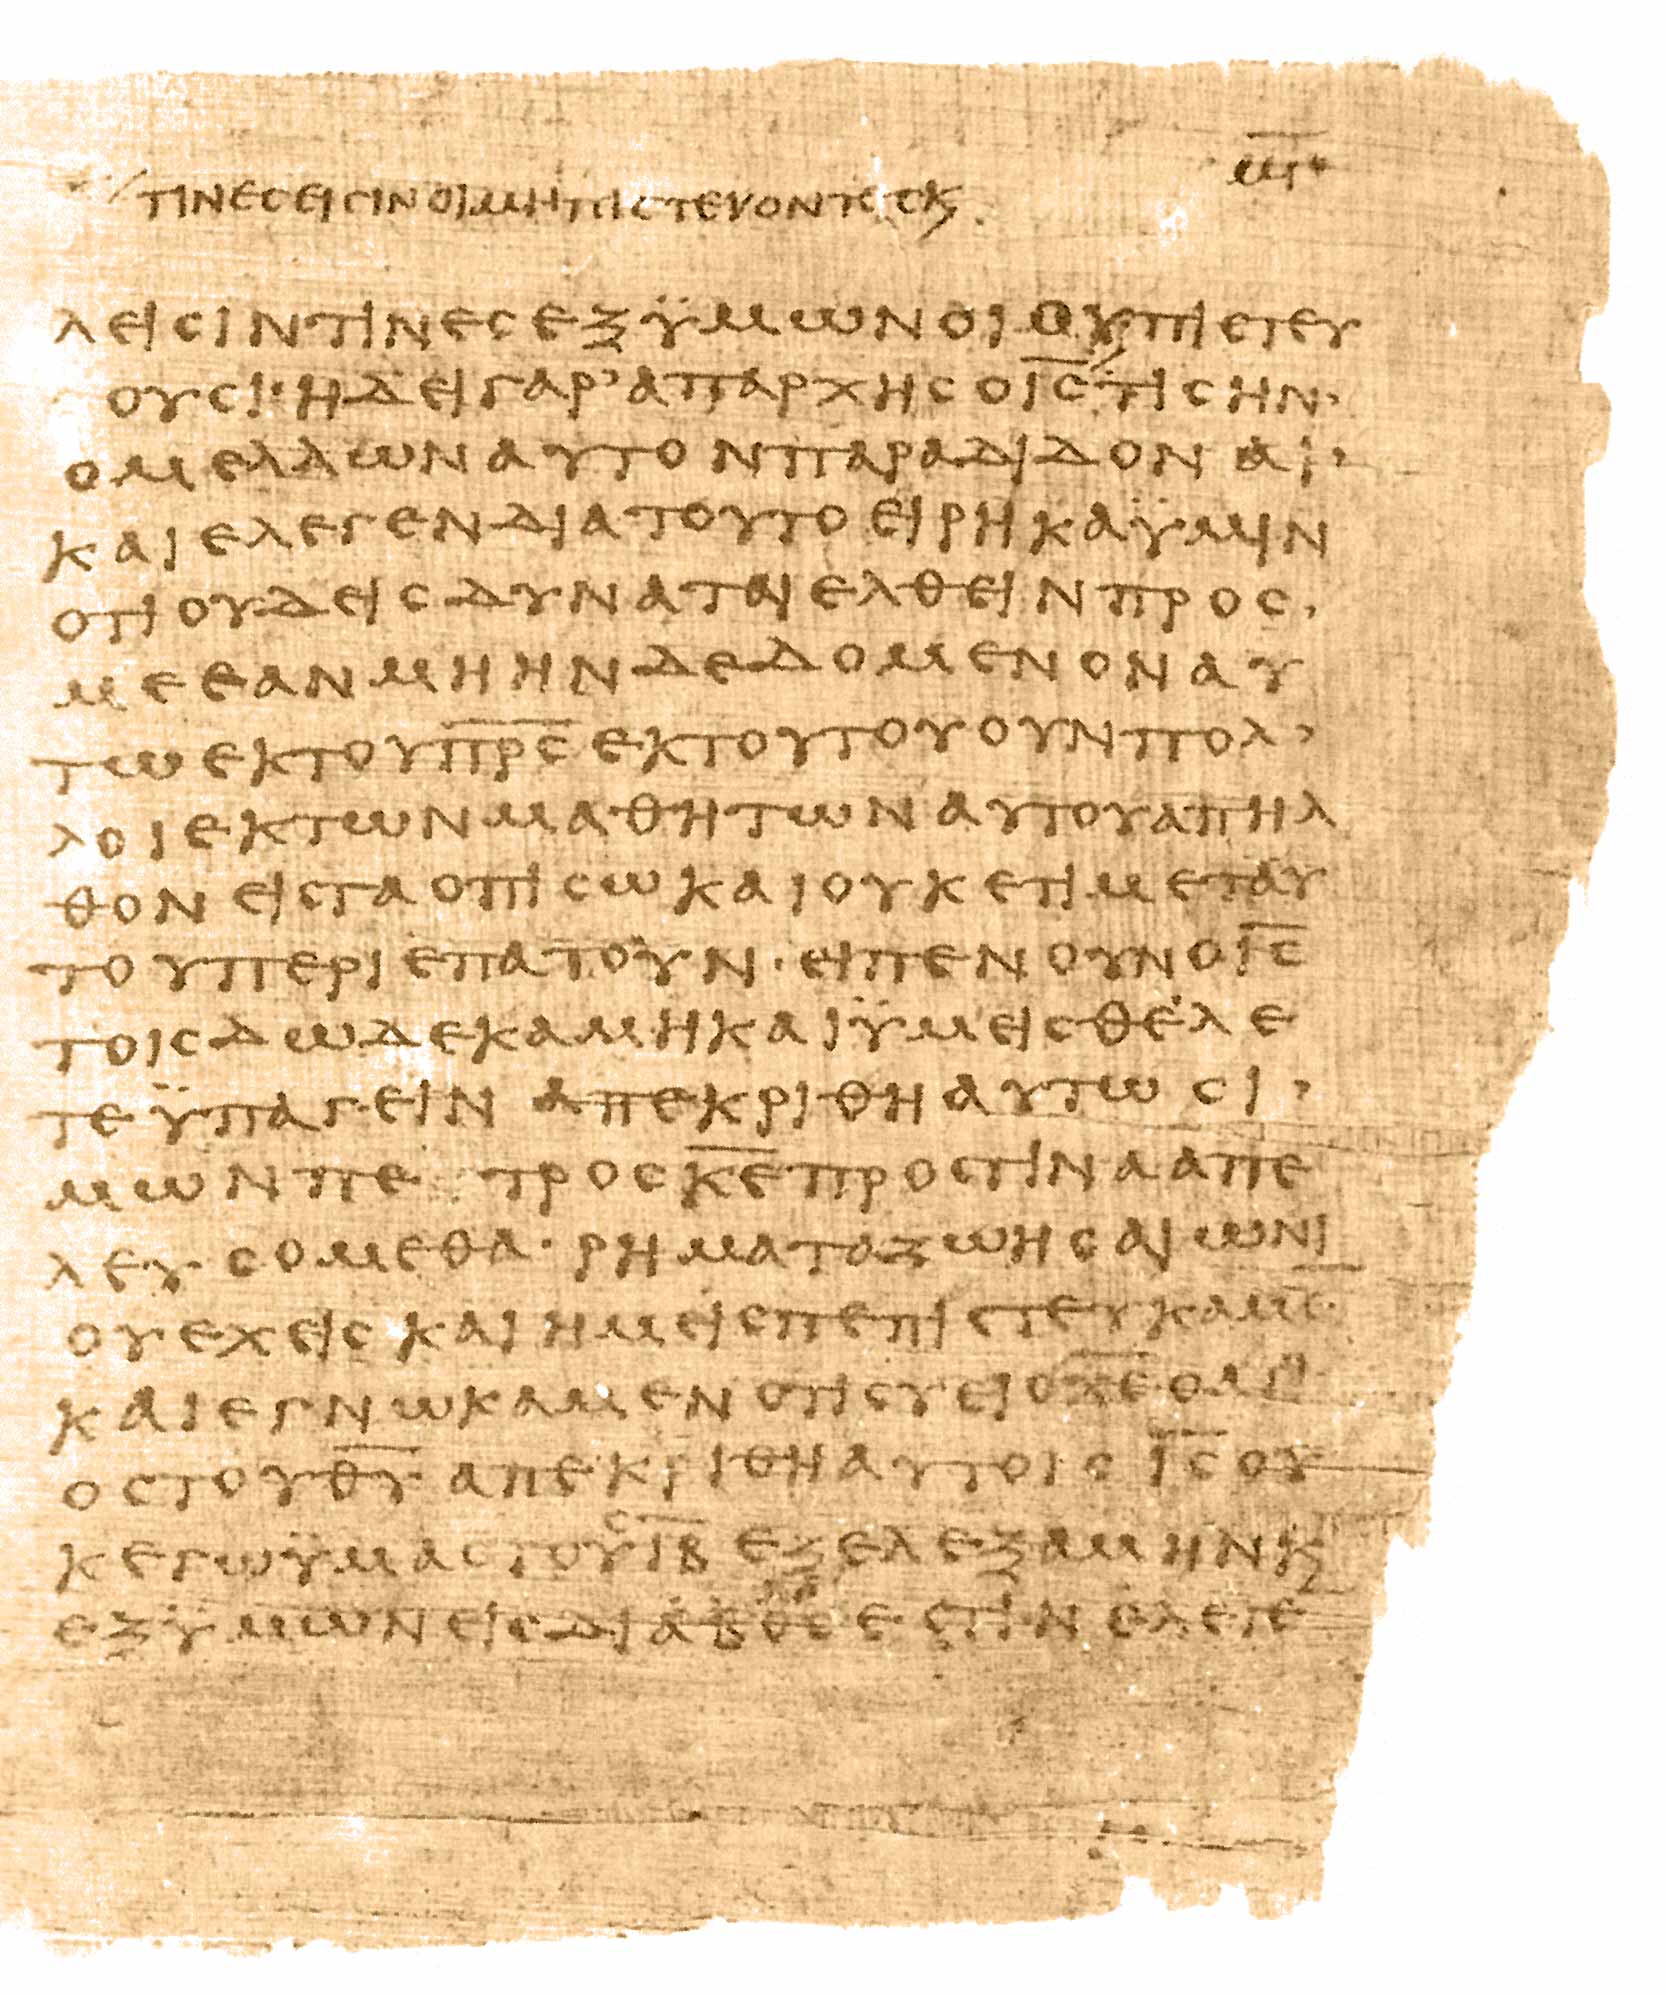 μγ
τινεσεισινοιμηπιστευοντεσκ
λεισιντινεσεξϋμωνοιουπιστευ
ουσι·ηδειγαρ’απαρχησοι̅σ̅τισην·
ομελλωναυτονπαραδιδοναι·
καιελεγενδιατουτοειρηκαϋμιν
οτιουδεισδυναταιελθεινπροσ·
μεεανμηηνδεδομενοναυ
τωεκτουπ̅ρ̅σ̅εκτουτουουνπολ·
λοιεκτωνμαθητωναυτουαπηλ
θονεισταοπισωκαιουκετιμεταυ
τουπεριεπατουν·ειπενουνοι̅σ̅
τοισδωδεκαμηκαιϋμεισθελε
τεϋπαγειναπεκριθηαυτωσι·
μωνπετροσκ̅ε̅προστινααπε
λευσομεθα·ρηματαζωησαιωνι
ουεχεισκαιημεισπεπιστευκαμε
καιεγνωκαμενοτισυειοχ̅ε̅οαγι
οστουθ̅υ̅απεκριθηαυτοισι̅σ̅ου
κεγωϋμαστουσι̅β̅εξελεξαμηνκ
εξϋμωνεισδιαβοεστινελεγε